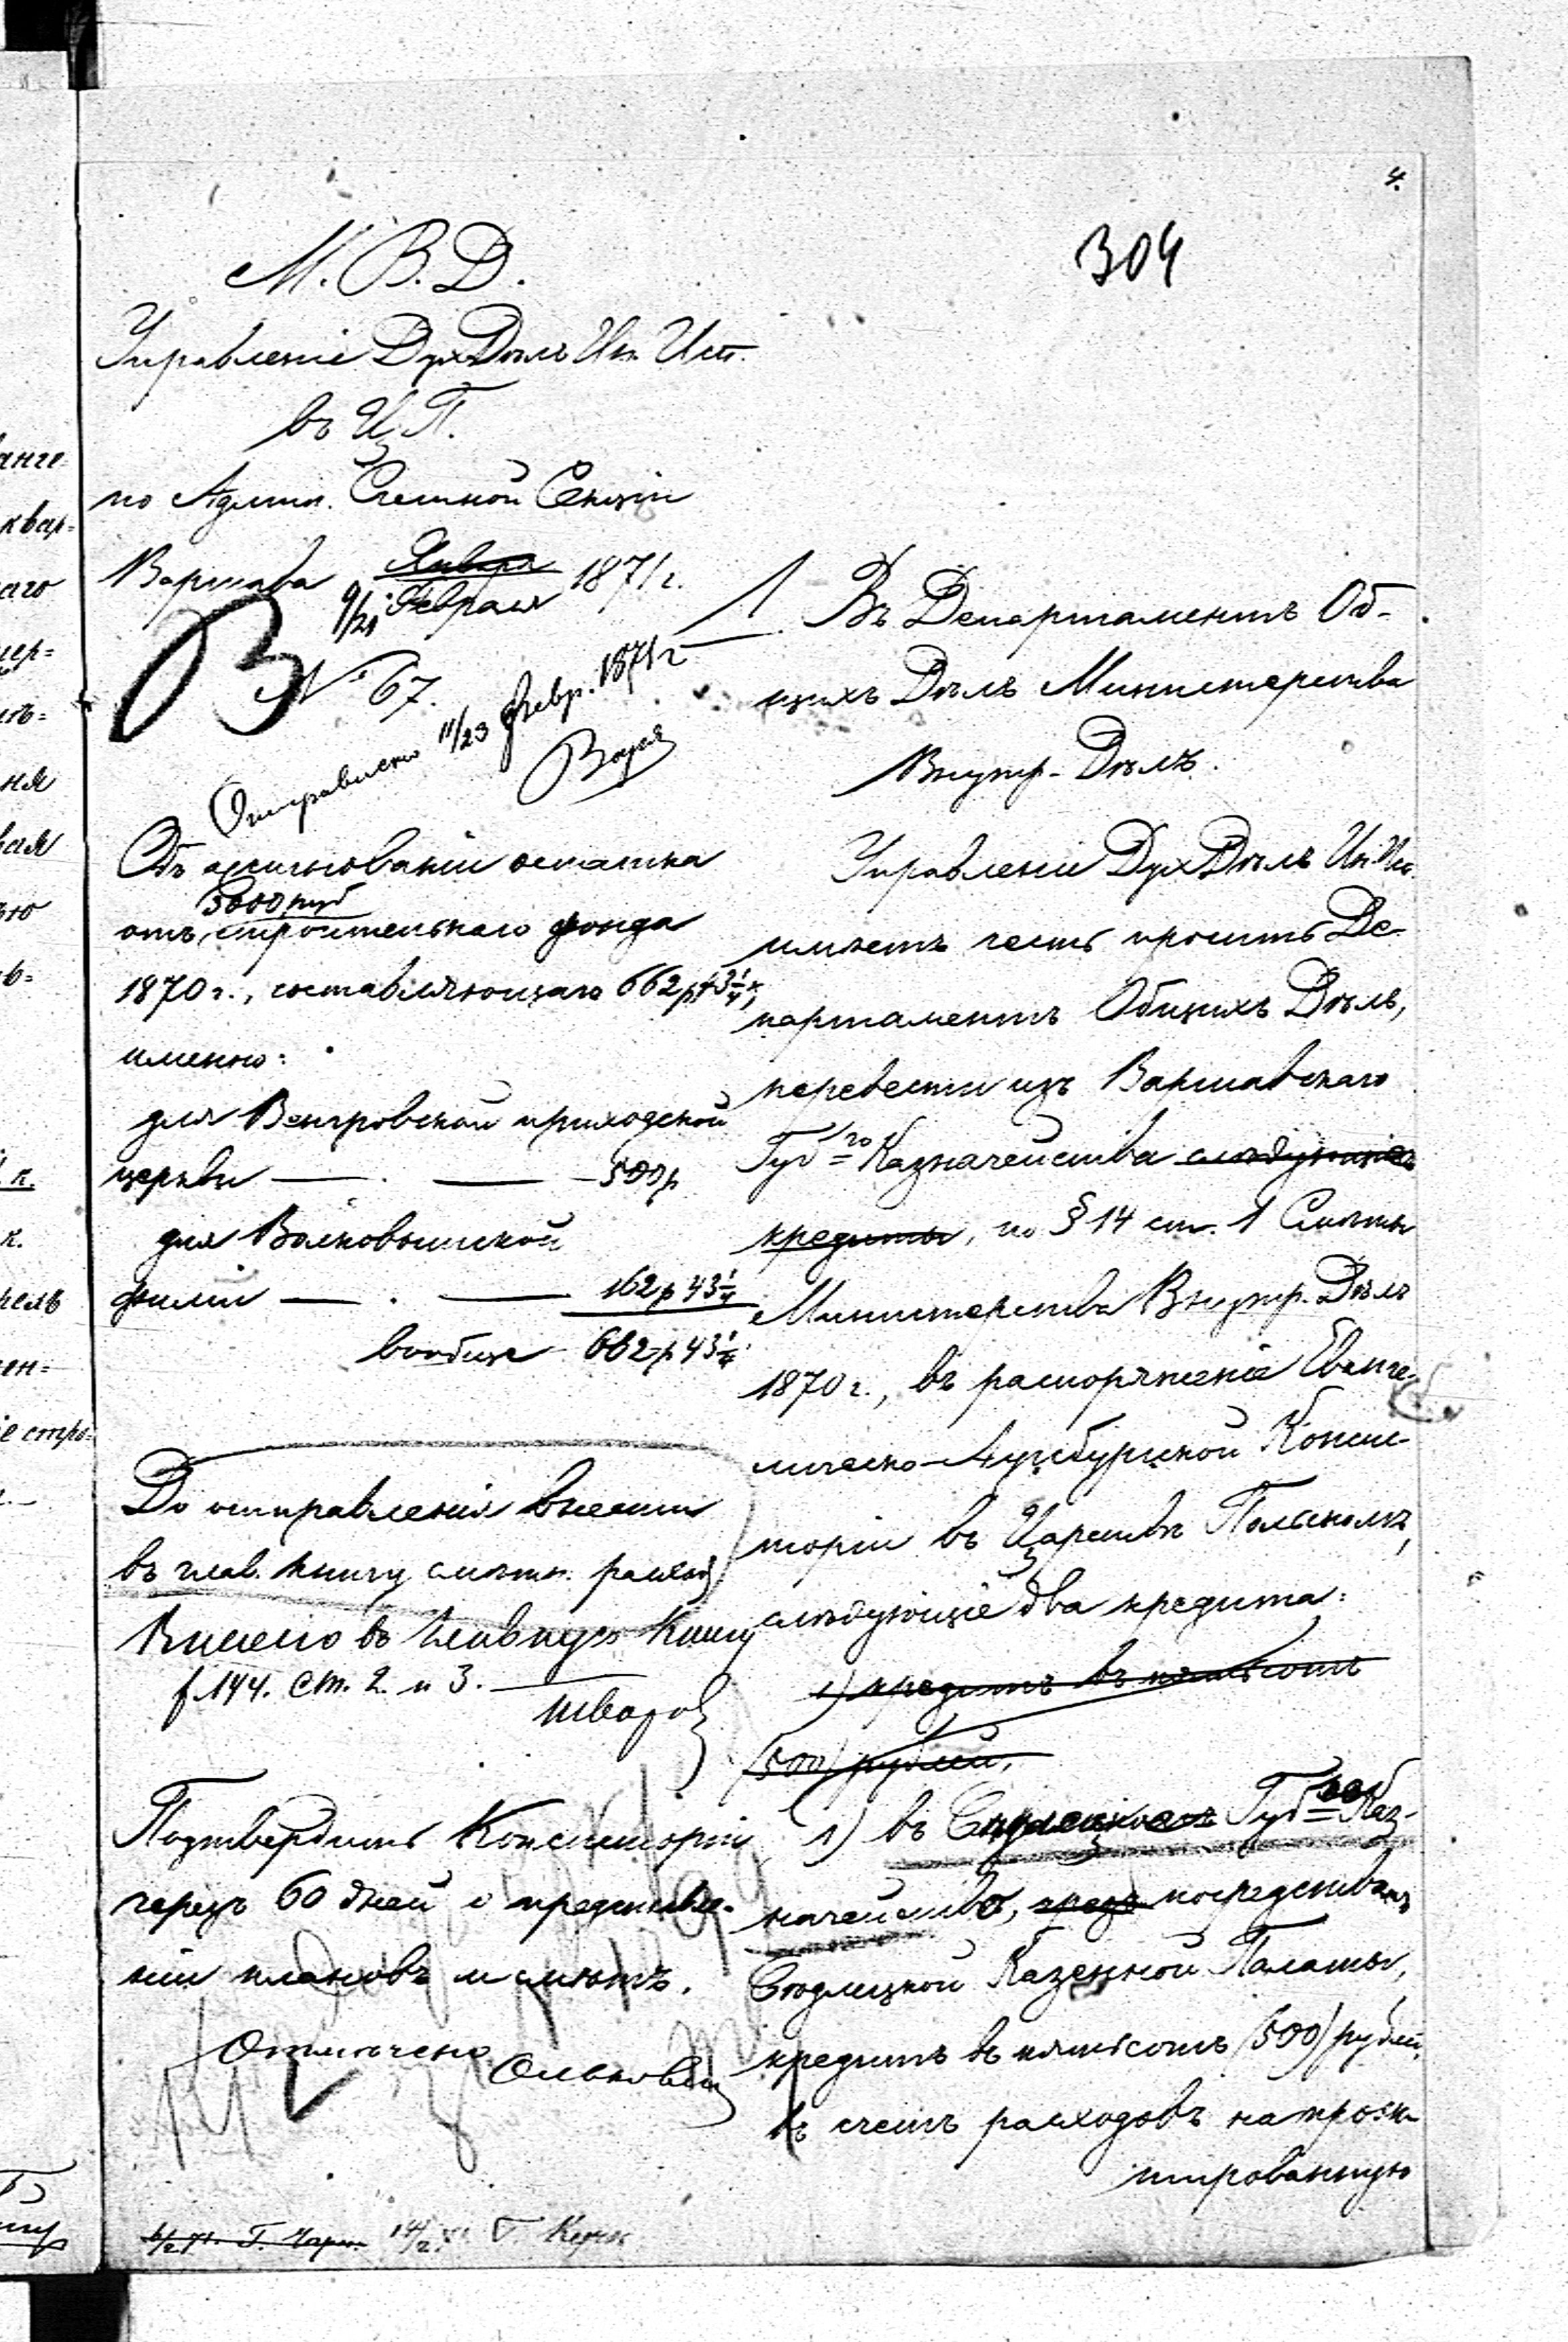 4.
304
М. В. Д.
Управленіе Дух Дѣлъ Ин. Исп.
въ Ц. П.
по Админ. Счетной Секціи
Варшава Января 1871 г.
9/21 Февраля
№ 67.
Отправлено 11/23 Февр. 1871 г
Объ ассигнованіи остатка
3000 руб
отъ строительнаго фонда
1870 г., составляющаго 662 р 43 1/4 к,
именно:
для Венгровской приходской
церкви — . — 500 р
для Волковышской
филіи — . — 162 р 43 1/4
вообще 662 р 43 1/4
До отправленія внести
въ глав. книгу смѣтн. расход
Внесено въ Главную Книгу
f. 144. ст. 2 и 3.
Подтвердить Консисторіи
черезъ 60 дней о представле-
ніи плановъ и смѣтъ.
Отмѣчено
1. Въ Департаментъ Об-
щихъ Дѣлъ Министерства
Внутр. Дѣлъ.
Управленіе Дух Дѣлъ Ин. Исп.
имѣетъ честь просить Де-
партаментъ Общихъ Дѣлъ,
перевести изъ Варшавскаго
Губ=го Казначейства слѣдующіе
кредиты, по § 14 ст. 1 Смѣты
Министерства Внутр. Дѣлъ
1870 г., въ распоряженіе Еванге-
лическо-Аугсбургской Консис-
торіи въ Царствѣ Польскомъ,
слѣдующіе два кредита:
1) кредитъ въ пятьсотъ
(500) рублей,
1) въ Сѣдлецкое Губ=ое Каз-
начейство, чрезъ посредство
Сѣдлецкой Казенной Палаты,
кредитъ въ пятьсотъ (500) рублей,
въ счетъ расходовъ на проэк-
тированную